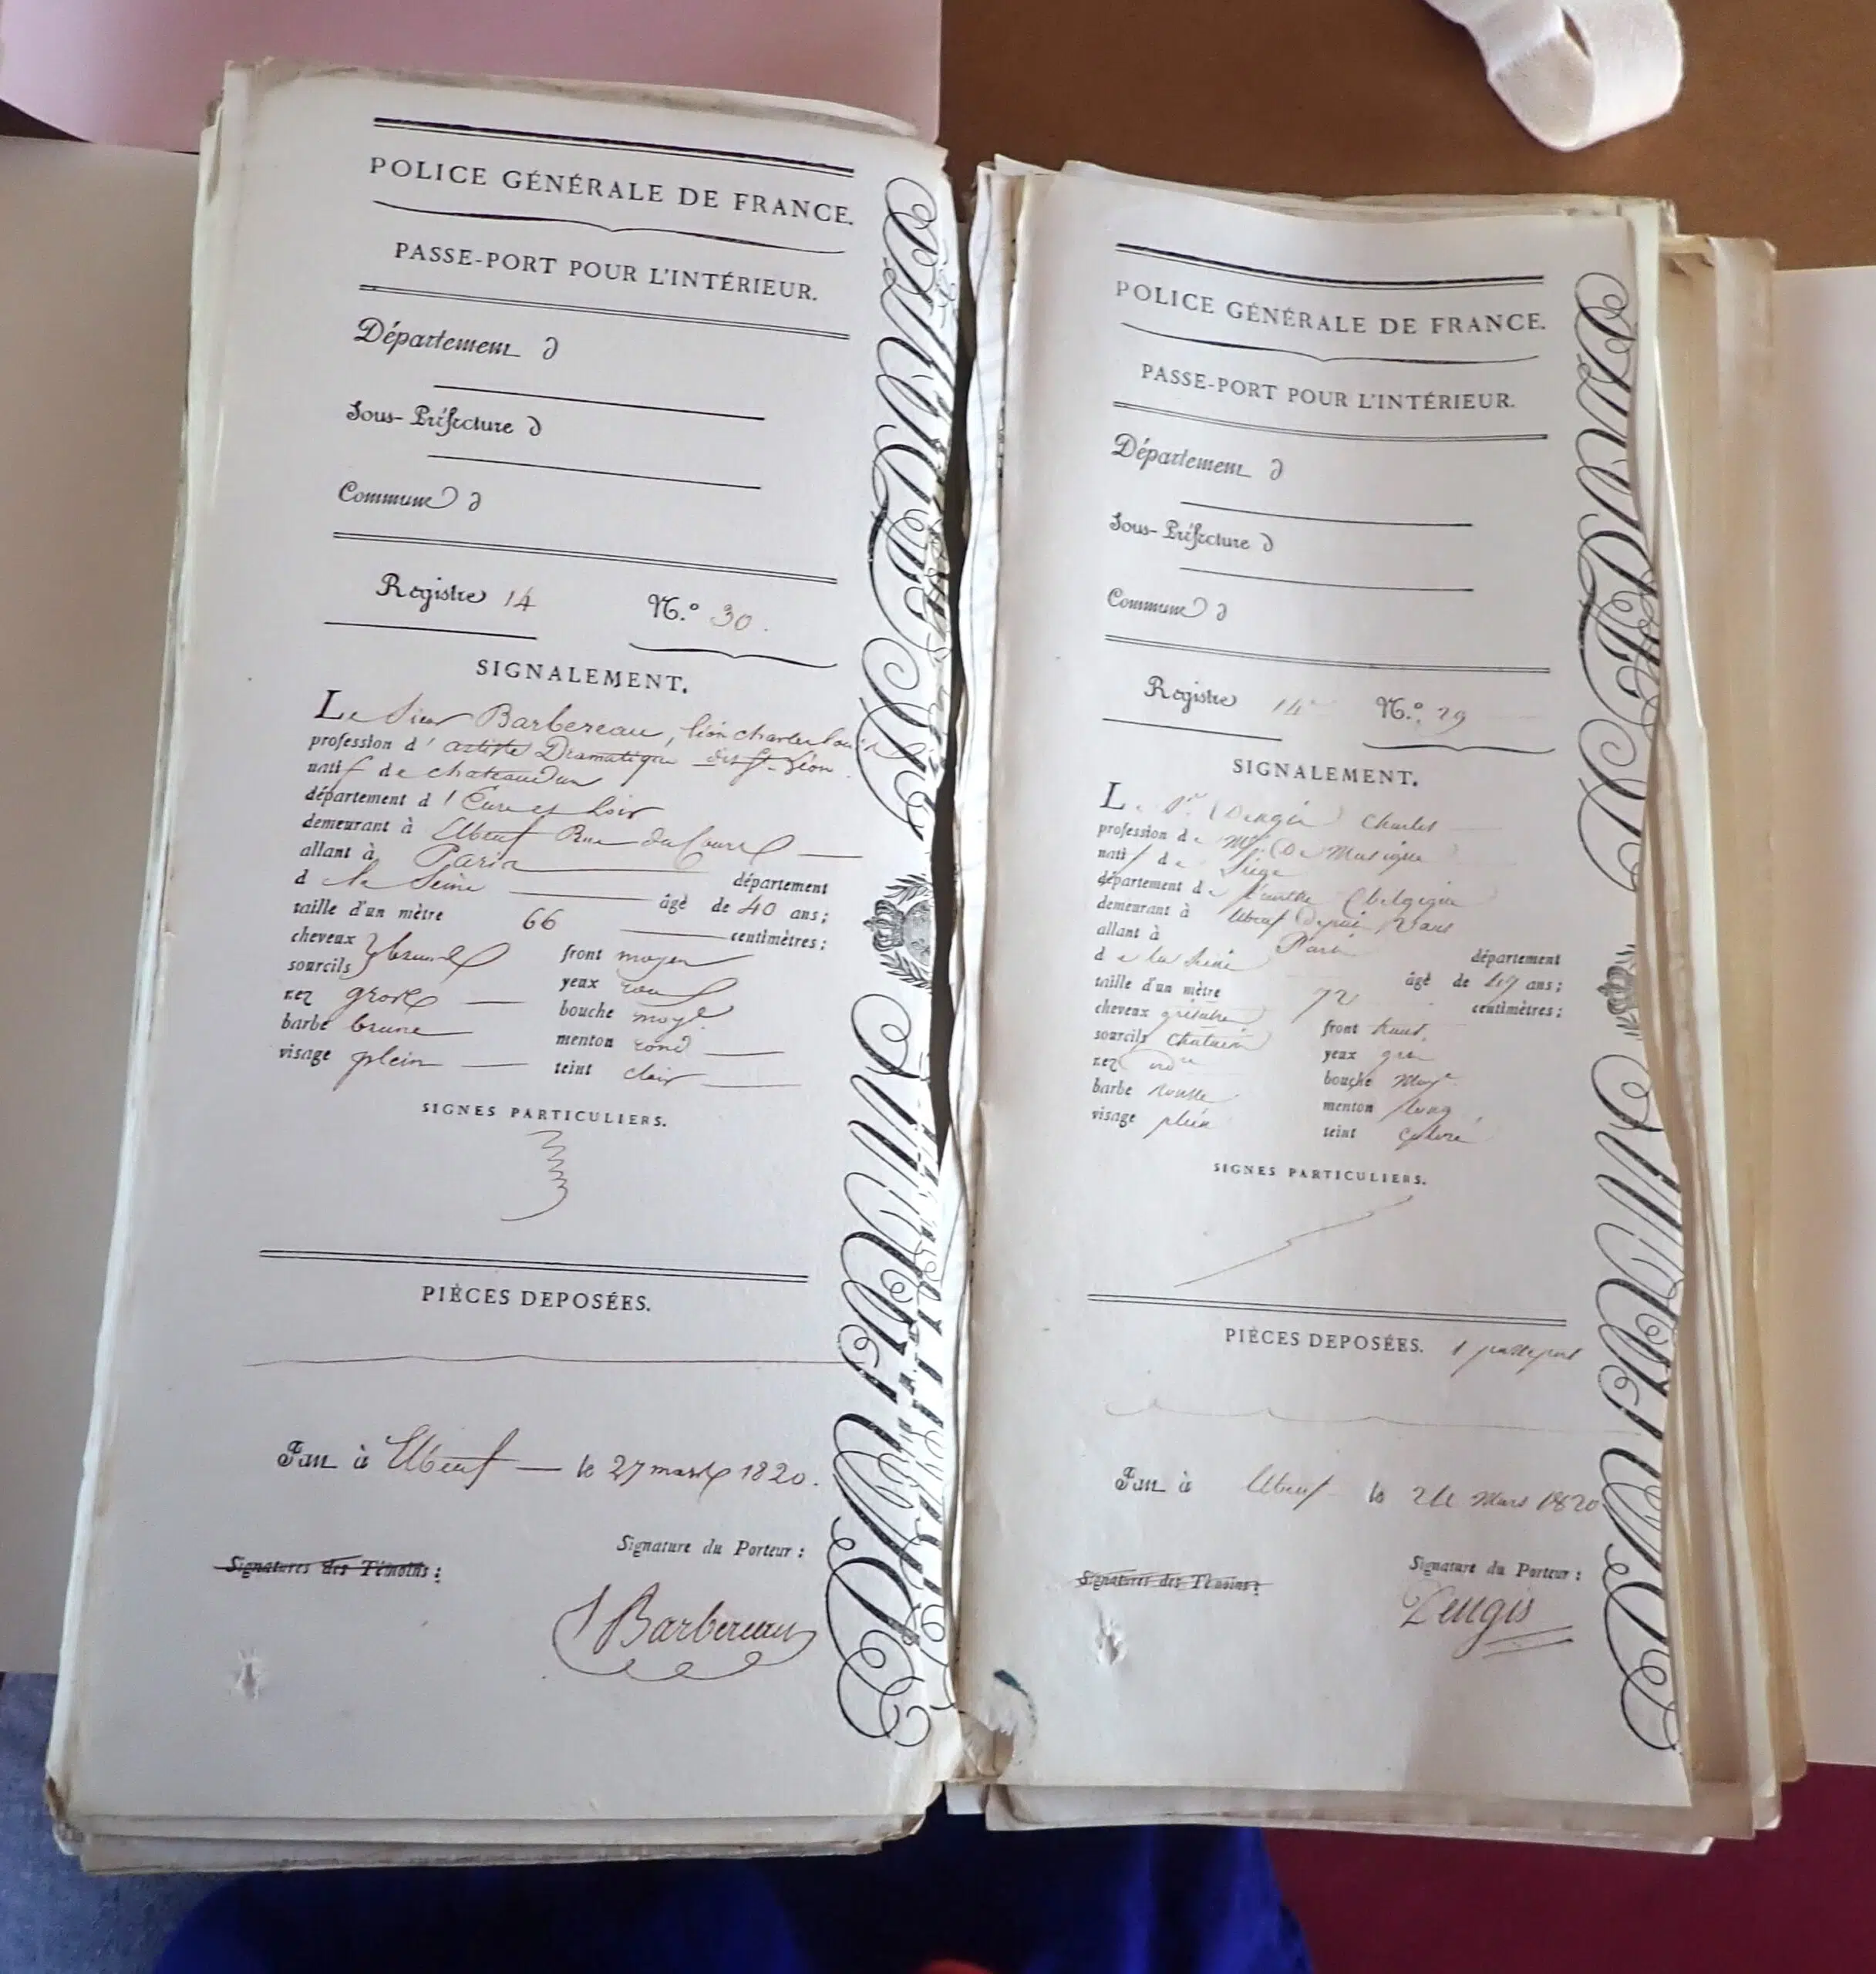 POLICE GÉNÉRALE DE FRANCE.
PASSE-PORT POUR L'INTÉRIEUR.
Département d
Sous-Préfecture d
Commune d
Registre 14 N.° 30.
SIGNALEMENT.
Le Sieur Barbereau, léon charles louis
profession d'artiste Dramatique dit St. Léon.
natif de chateaudun
département d'Eure et Loir
demeurant à Elbeuf Rue du Cours
allant à Paris département
d la Seine âgé de 40 ans;
taille d'un mètre 66 centimètres;
cheveux front moyen
sourcils bruns yeux roux
nez gros bouche moye.
barbe brune menton rond
visage plein teint clair
SIGNES PARTICULIERS.
PIÈCES DEPOSÉES.
Fait à Elbeuf le 27 mars 1820.
Signature du Porteur :
Signatures des Témoins :
Barbereau
POLICE GÉNÉRALE DE FRANCE.
PASSE-PORT POUR L'INTÉRIEUR.
Département d
Sous-Préfecture d
Commune d
Registre 14 N.° 29
SIGNALEMENT.
Le Sr Charles
profession de Md. De Musique
natif de Liège
département de (belgique
demeurant à Elbeuf Depuis 2 ans
allant à Paris département
de la Seine âgé de 47 ans;
taille d'un mètre 72 centimètres;
cheveux grisatre front haut,
sourcils chatain yeux gris
nez ordre bouche Moye.
barbe rousse menton long
visage plein teint coloré
SIGNES PARTICULIERS.
PIÈCES DEPOSÉES. 1 passeport
Fait à Elbeuf le 24 Mars 1820
Signature du Porteur :
Signatures des Témoins :
Dengis